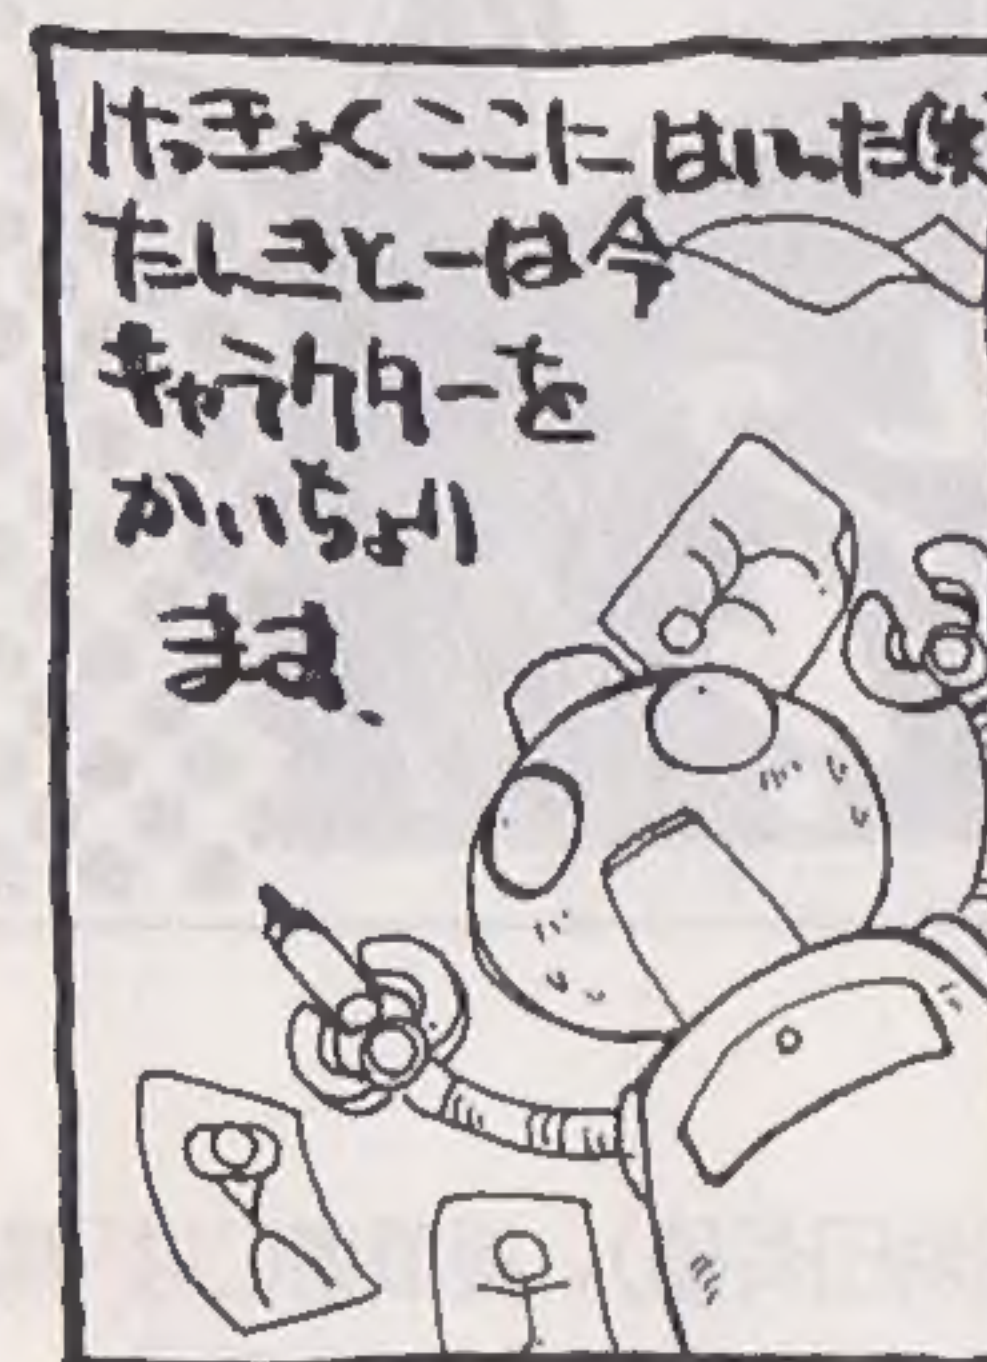 けっきょくここに はいった
たしきとーは今
キャラクターを
かいちょり
ます、